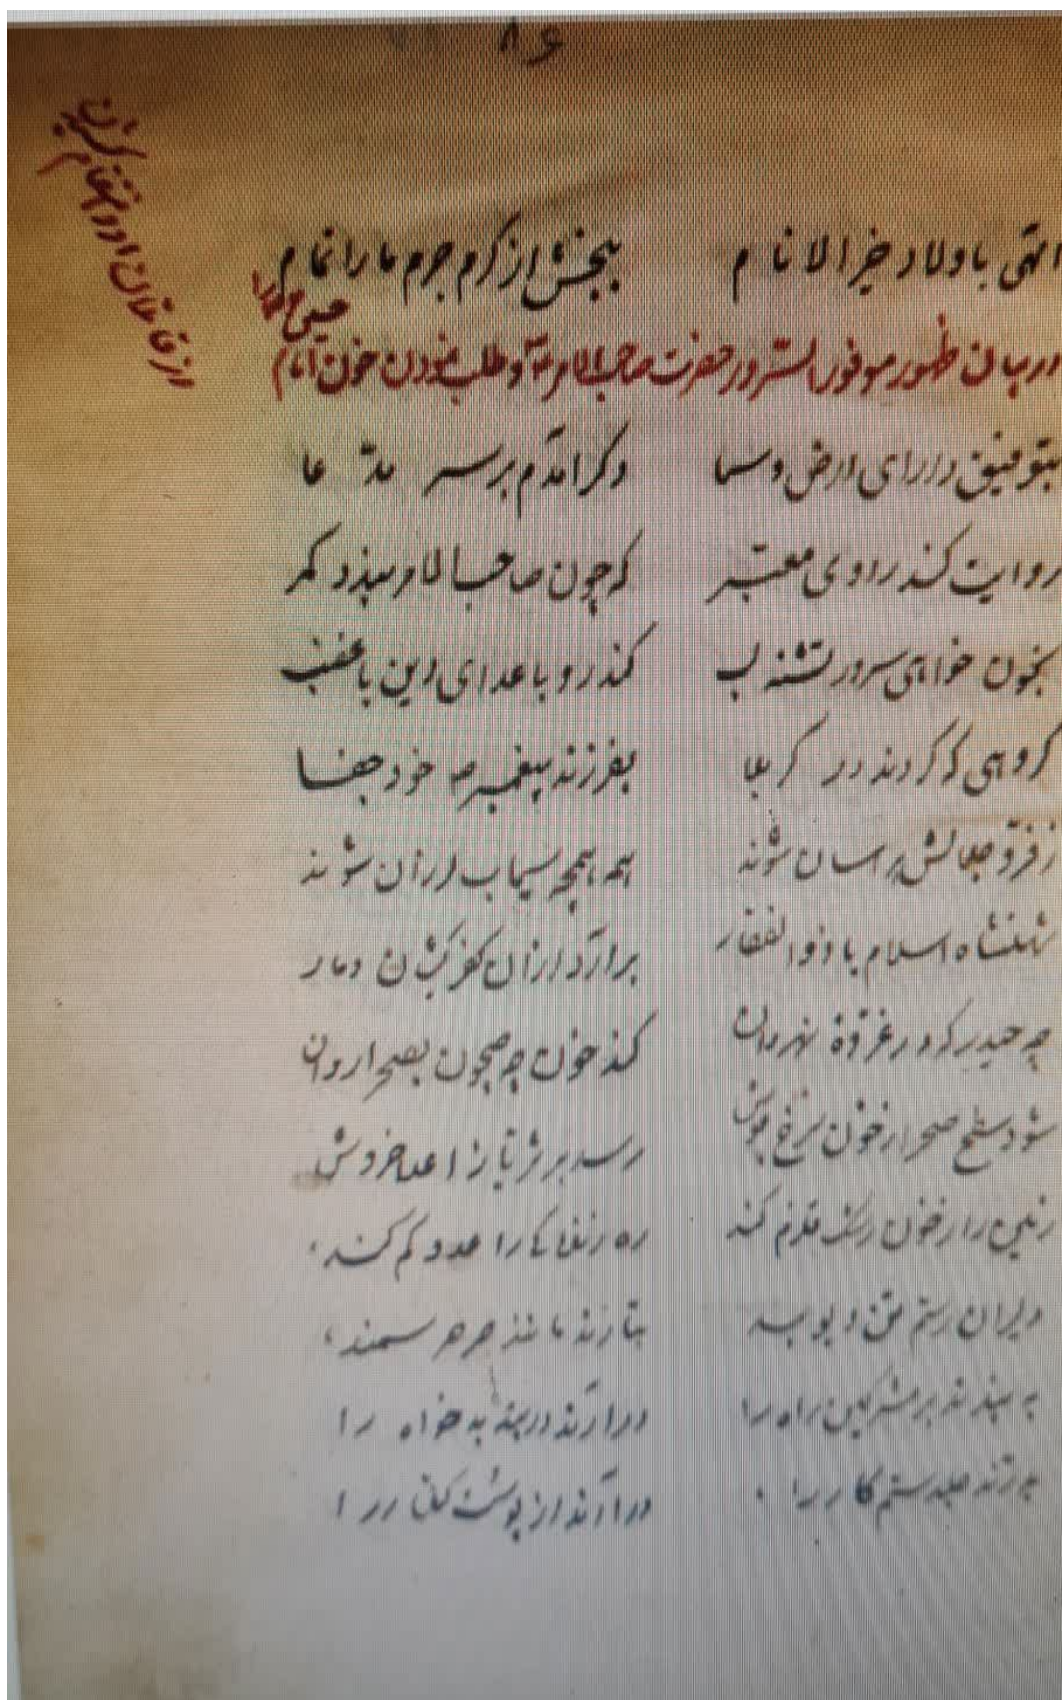 ۸۶
الهی باولاد خیر الانام بجنش از کرم جرم ما را تمام
در بیان ظهور موفور السرور حضرت صاحب الامر و طلب نمودن خون امام
حسین
از قاتلان او و انتقام
بتوفیق دارای ارض و سما دگر آمدم بر سر مدعا
روایت کند راوی معتبر که چون صاحب الامر ببندد کمر
بخون خواهی سرور تشنه لب کند رو باعدای دین با غضب
گروهی که کردند در کربلا بفرزند پیغمبر خود جفا
ز فر و جلالش هراسان شوند همه همچو سیماب لرزان شوند
شهنشاه اسلام با ذوالفقار برآرد از آن کفرکیشان دمار
چه حیدر که در غزوه نهروان کند خون چه جیحون بصحرا روان
شود سطح صحرا ز خون سرخ پوش رسد بر ثریا ز اعدا خروش
زمین را ز خون رنگ قلزم کند ره زندگی را عدو گم کند
دلیران رستم تن دیوبند بتازند مانند صرصر سمند
به بندند بر مشرکین راه را درآرند در بند بدخواه را
به زنند ستمکار را درآرند از پوست کفار را